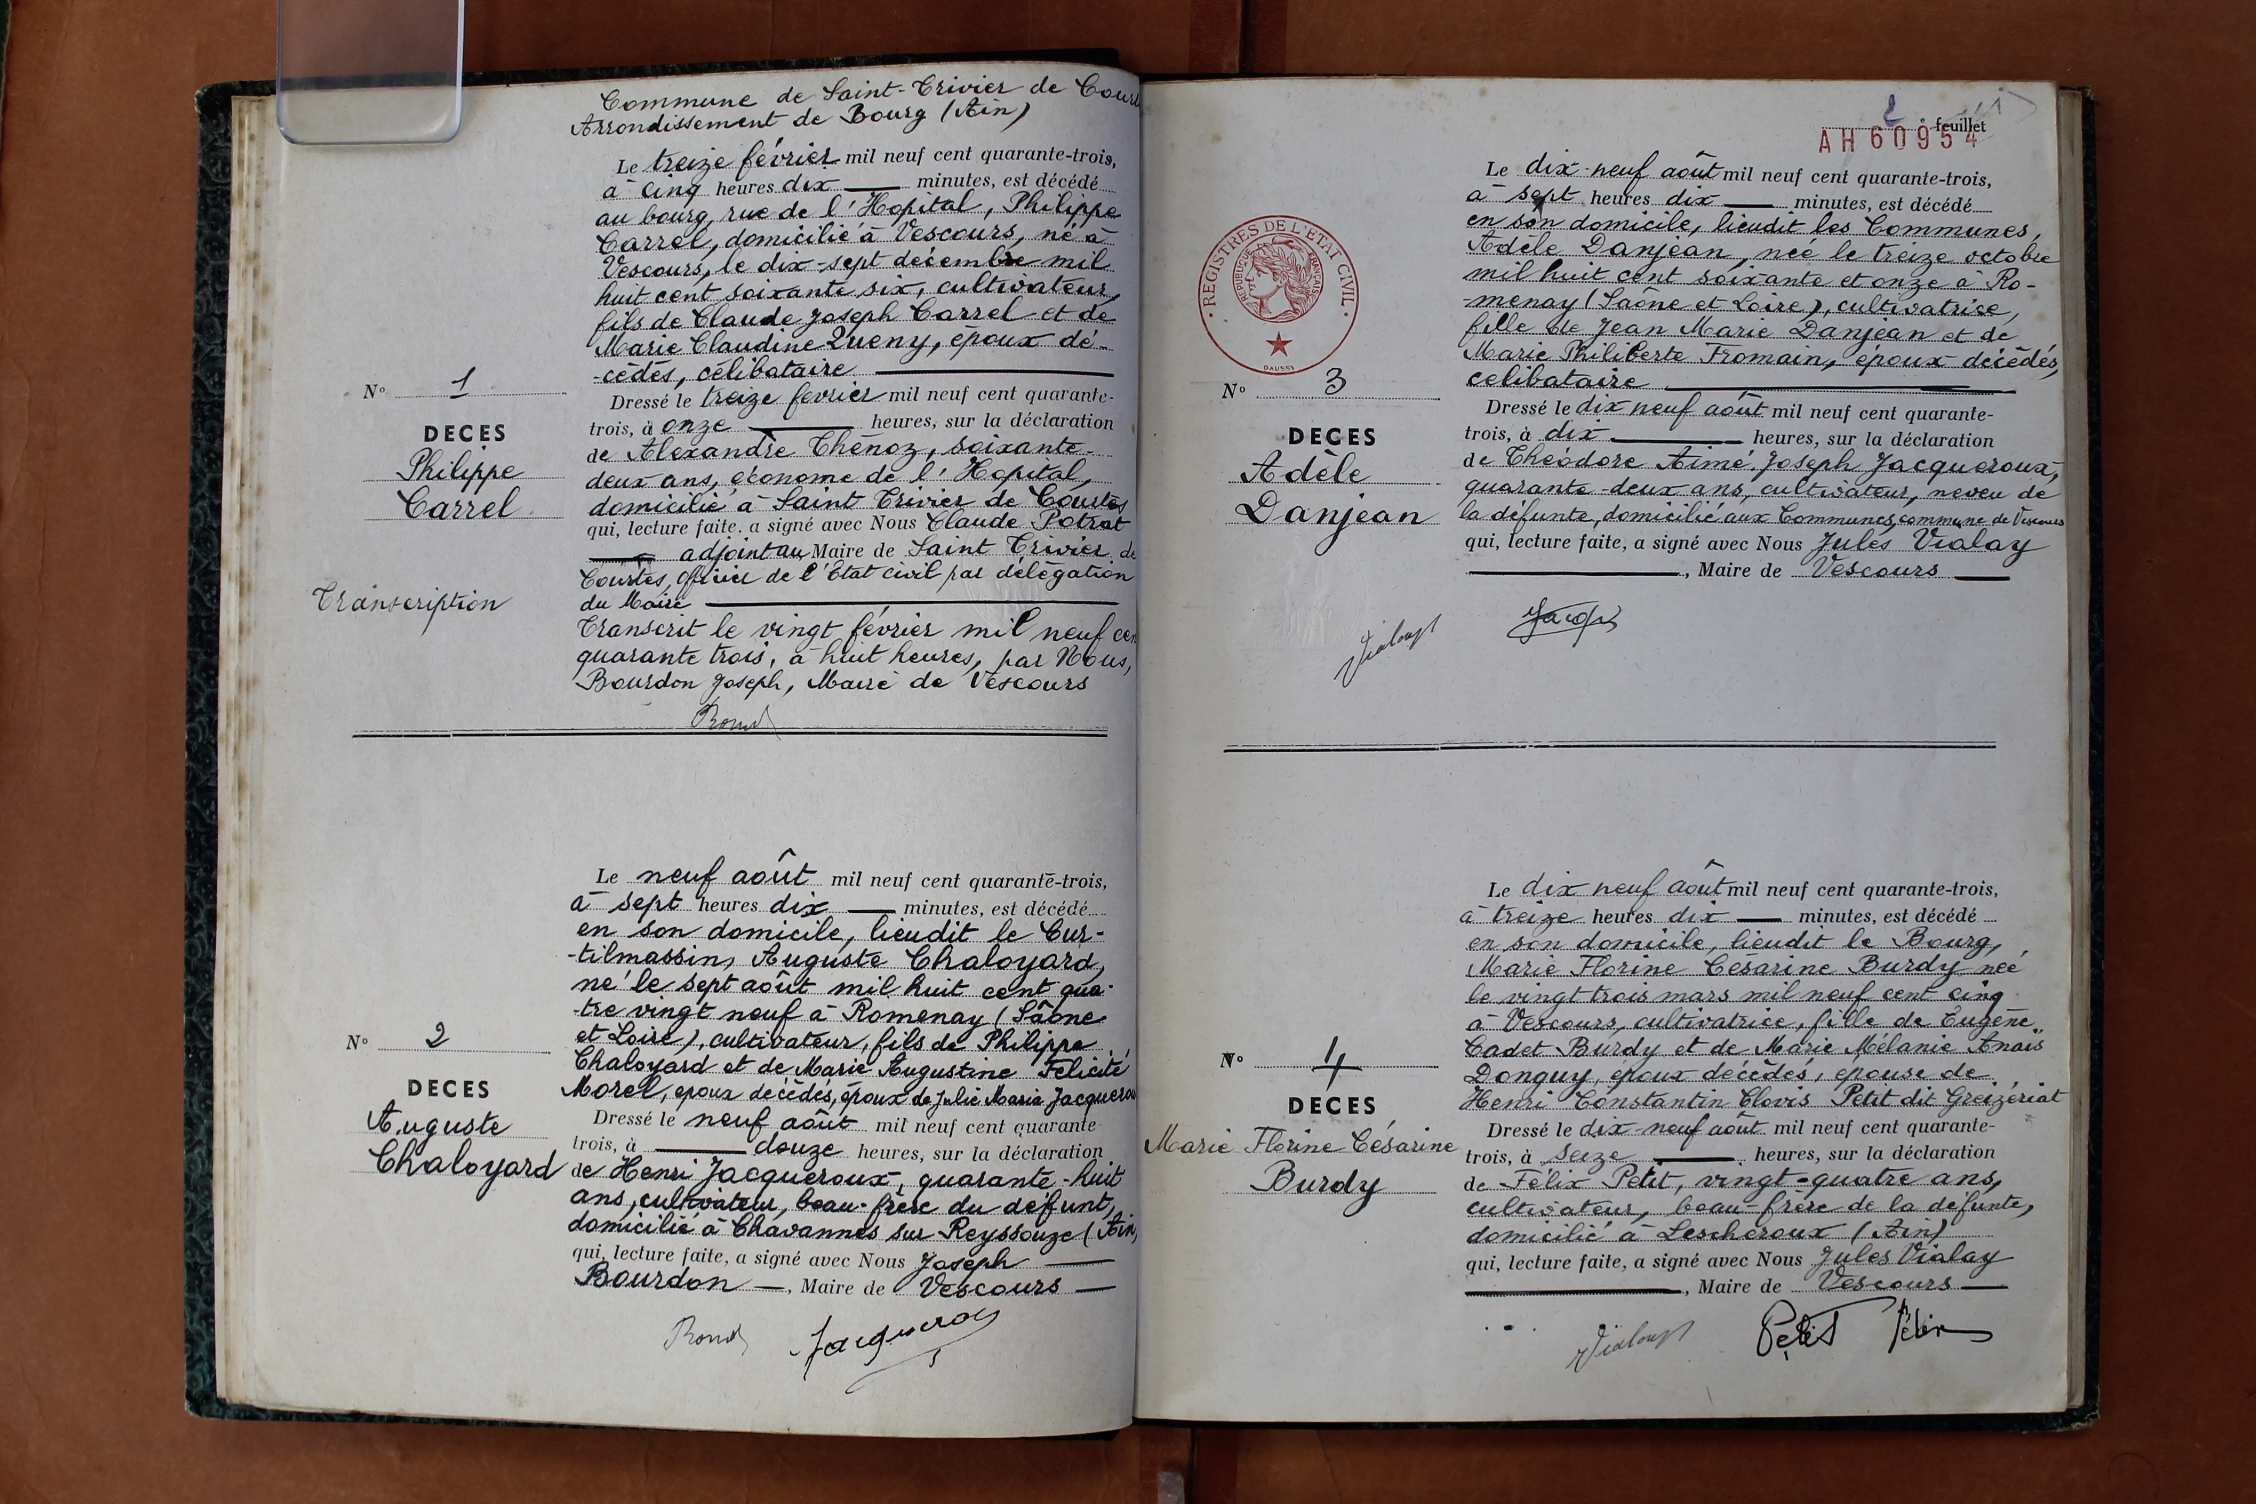 Commune de Saint-Trivier de Court
Arrondissement de Bourg (Ain)
Le treize février mil neuf cent quarante-trois,
à cinq heures dix minutes, est décédé
au bourg, rue de l'Hopital, Philippe
Carrel, domicilié à Vescours, né à
Vescours, le dix-sept décembre mil
huit cent soixante six, cultivateur,
fils de Claude Joseph Carrel et de
Marie Claudine Queny, époux dé-
-cédés, célibataire
N° 1
DECES
Philippe
Carrel
Dressé le treize fevrier mil neuf cent quarante-
trois, à onze heures, sur la déclaration
de Alexandre Thénoz, soixante-
deux ans, économe de l'Hopital,
domicilié à Saint Trivier de Courtes
qui, lecture faite, a signé avec Nous Claude Potrat
adjoint au Maire de Saint Trivier de
Courtes, officier de l'Etat civil par délégation
du Maire
Transcription
Transcrit le vingt février mil neuf cen
quarante trois, à huit heures, par Nous,
Bourdon Joseph, Maire de Vescours
Le neuf août mil neuf cent quarante-trois,
à sept heures dix minutes, est décédé
en son domicile, lieudit le Cur-
-tilmassin, Auguste Chaloyard,
né le sept août mil huit cent qua-
-tre vingt neuf à Romenay (Saône
et Loire), cultivateur, fils de Philippe
Chaloyard et de Marie Augustine Félicité
Morel, époux décédés, époux de Julie Maria Jacquerou
N° 2
DECES
Auguste
Chaloyard
Dressé le neuf août mil neuf cent quarante-
trois, à douze heures, sur la déclaration
de Henri Jacqueroux, quarante-huit
ans, cultivateur, beau-frère du défunt,
domicilié à Chavannes sur Reyssouze (Ain)
qui, lecture faite, a signé avec Nous Joseph
Bourdon, Maire de Vescours
Jacqueroux
2 e feuillet
AH 60954
Le dix-neuf août mil neuf cent quarante-trois,
à sept heures dix minutes, est décédé
en son domicile, lieudit les Communes,
Adèle Danjean, née le treize octobre
mil huit cent soixante et onze à Ro-
-menay (Saône et Loire), cultivatrice,
fille de Jean Marie Danjean et de
Marie Philiberte Fromain, époux décédés,
célibataire
REGISTRES DE L'ETAT CIVIL
REPUBLIQUE FRANÇAISE
DAUSSY
N° 3
DECES
Adèle
Danjean
Dressé le dix neuf août mil neuf cent quarante-
trois, à dix heures, sur la déclaration
de Théodore Aimé Joseph Jacqueroux,
quarante-deux ans, cultivateur, neveu de
la défunte, domicilié aux Communes, commune de Vescours
qui, lecture faite, a signé avec Nous Jules Vialay
, Maire de Vescours
Le dix neuf août mil neuf cent quarante-trois,
à treize heures dix minutes, est décédé
en son domicile, lieudit le Bourg,
Marie Florine Césarine Burdy née
le vingt trois mars mil neuf cent cinq
à Vescours, cultivatrice, fille de Eugène
Cadet Burdy et de Marie Mélanie Anaïs
Donguy, époux décédés, épouse de
Henri Constantin Clovis Petit dit Greizériat
N° 4
DECES
Marie Florine Césarine
Burdy
Dressé le dix-neuf août mil neuf cent quarante-
trois, à seize heures, sur la déclaration
de Félix Petit, vingt-quatre ans,
cultivateur, beau-frère de la défunte,
domicilié à Lescheroux (Ain)
qui, lecture faite, a signé avec Nous Jules Vialay
, Maire de Vescours
Petit Félix